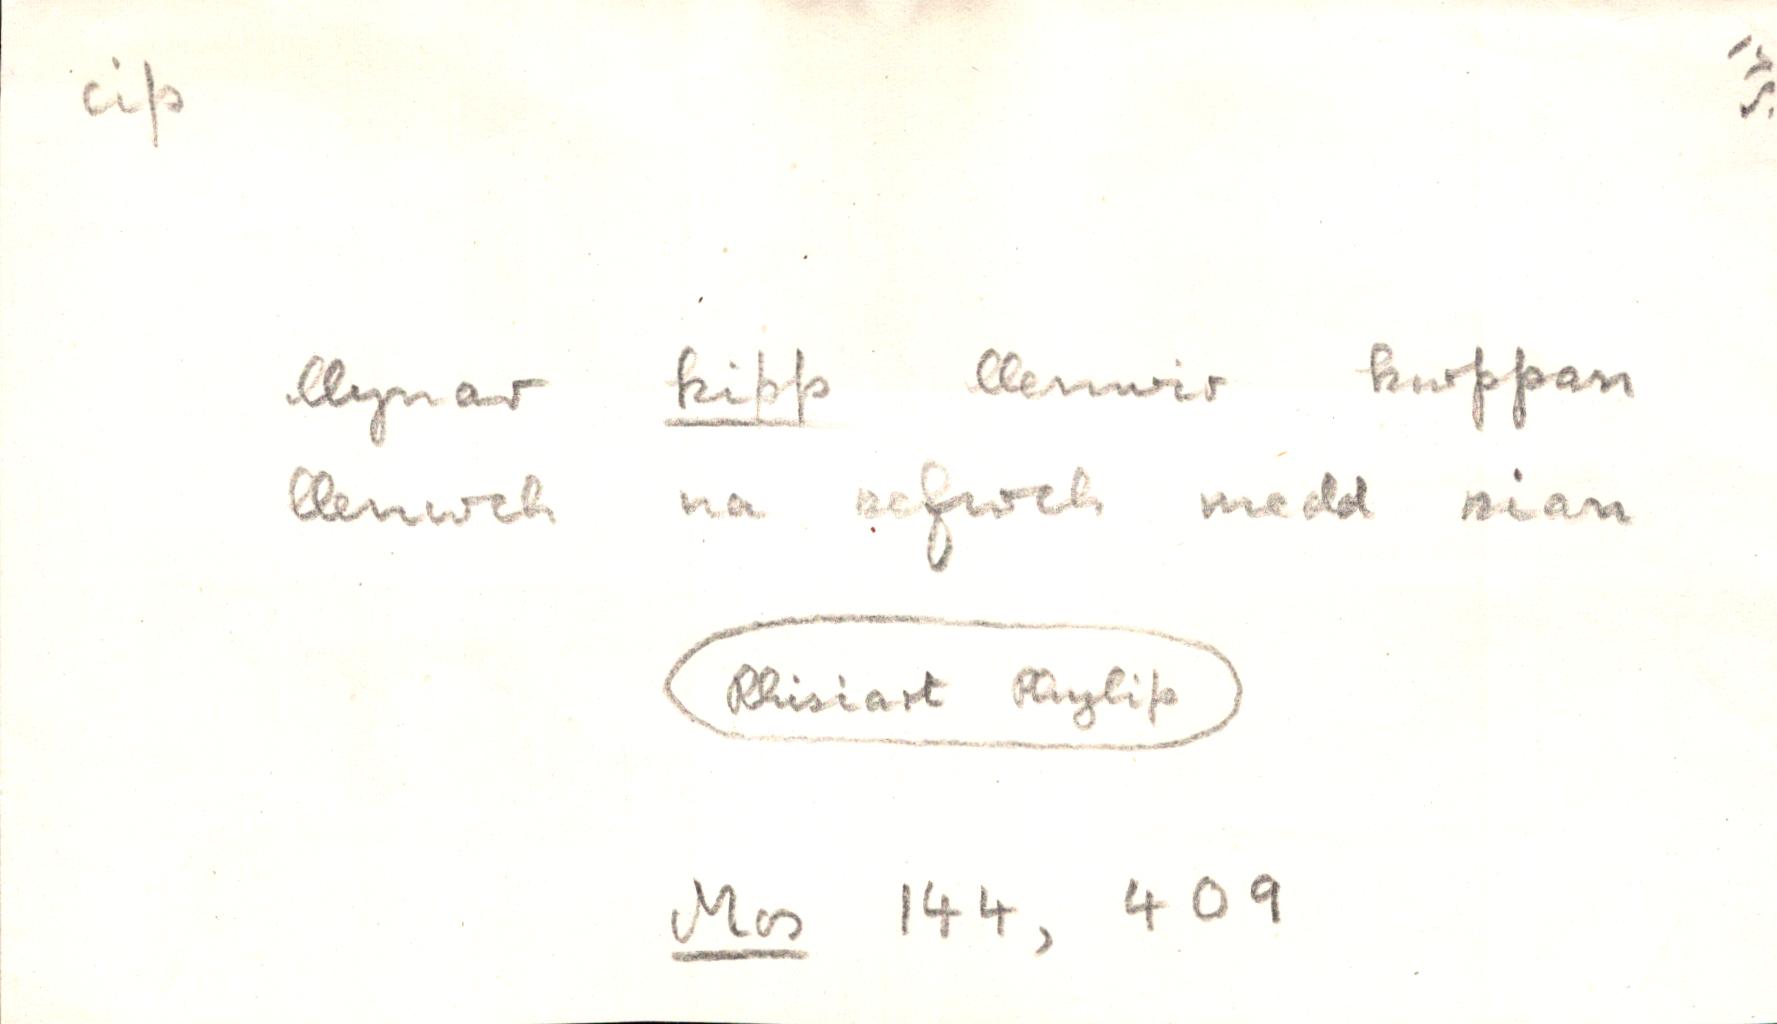 cip
llynav kipp llenwir kwppan
llenwch na sefwch medd sian
Rhisiart Phylip
Mos 144, 409